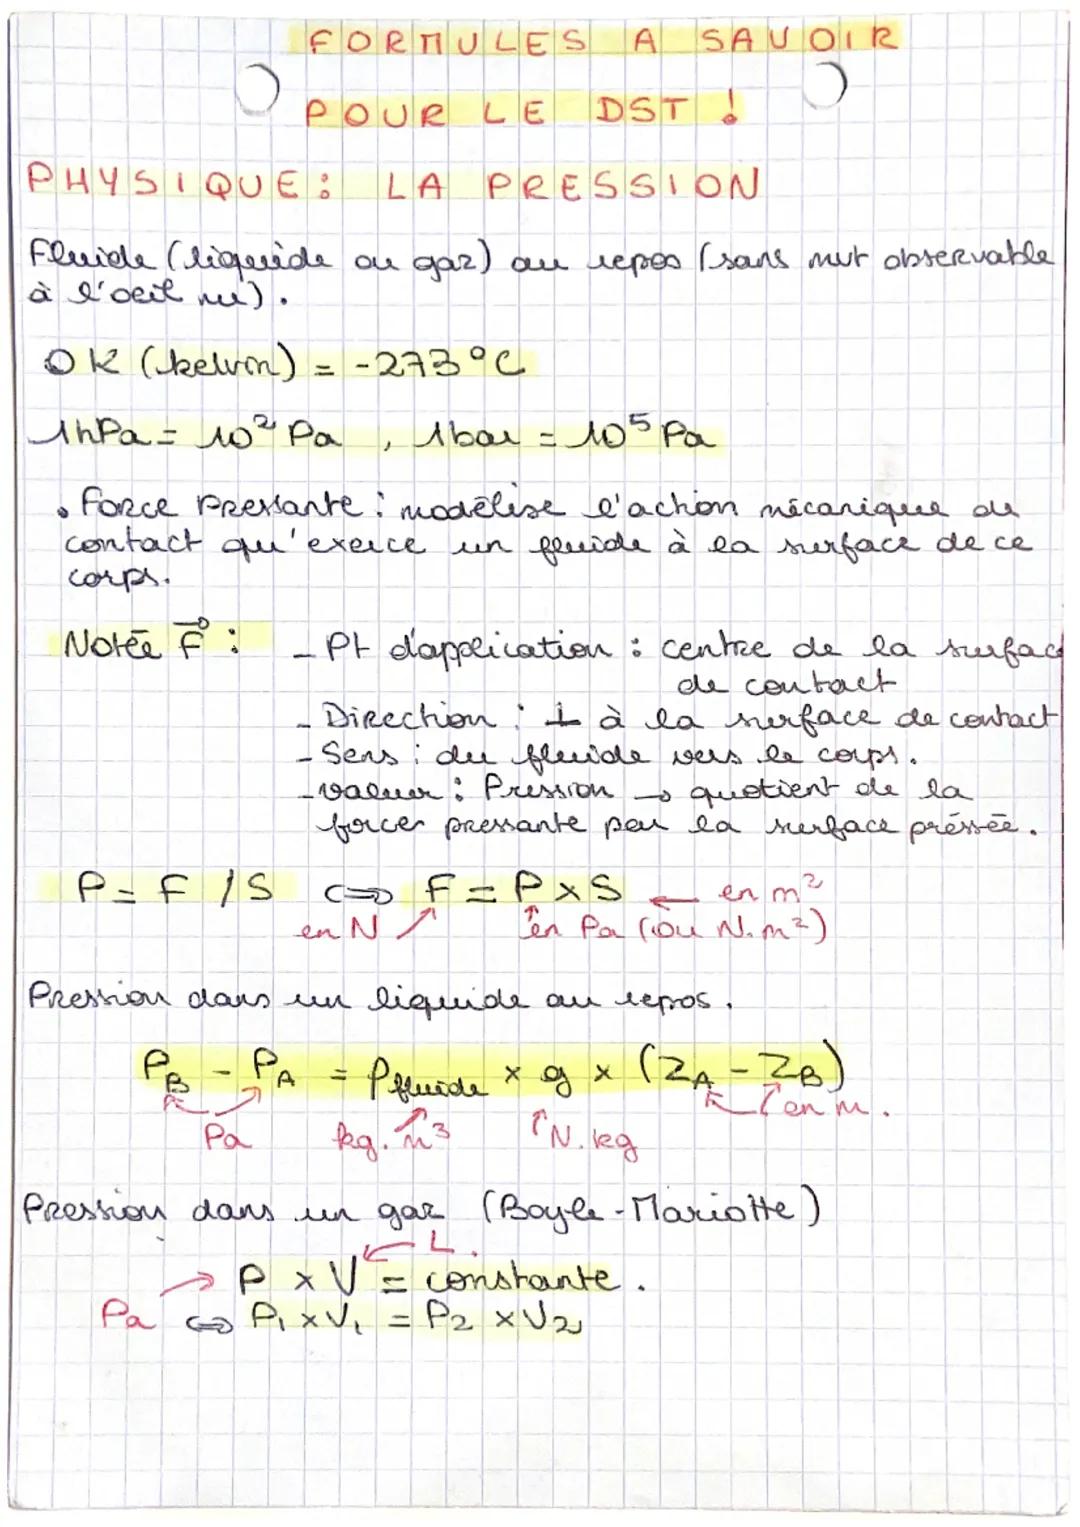 FORMULES A SAVOIR
POUR LE DST !
PHYSIQUE : LA PRESSION
Fluide (liquide ou gaz) au repos (sans mvt observable
à l'oeil nu).
0 K (kelvin) = -273°C
1hPa = 10² Pa , 1bar = 10⁵ Pa
• Force Pressante : modélise l'action mécanique de
contact qu'exerce un fluide à la surface de ce
corps.
Notée F⃗ : - Pt d'application : centre de la surface
de contact
- Direction : ⊥ à la surface de contact
- Sens : du fluide vers le corps.
- valeur : Pression → quotient de la
force pressante par la surface préssée.
P = F / S ⇔ F = P x S ← en m²
en N ↗ ↑ en Pa (ou N.m²)
Pression dans un liquide au repos.
P_B - P_A = ρ_fluide x g x (Z_A - Z_B)
Pa kg.m³ N.kg en m.
Pression dans un gaz (Boyle-Mariotte)
L.
P x V = constante.
Pa ⇔ P₁ x V₁ = P₂ x V₂